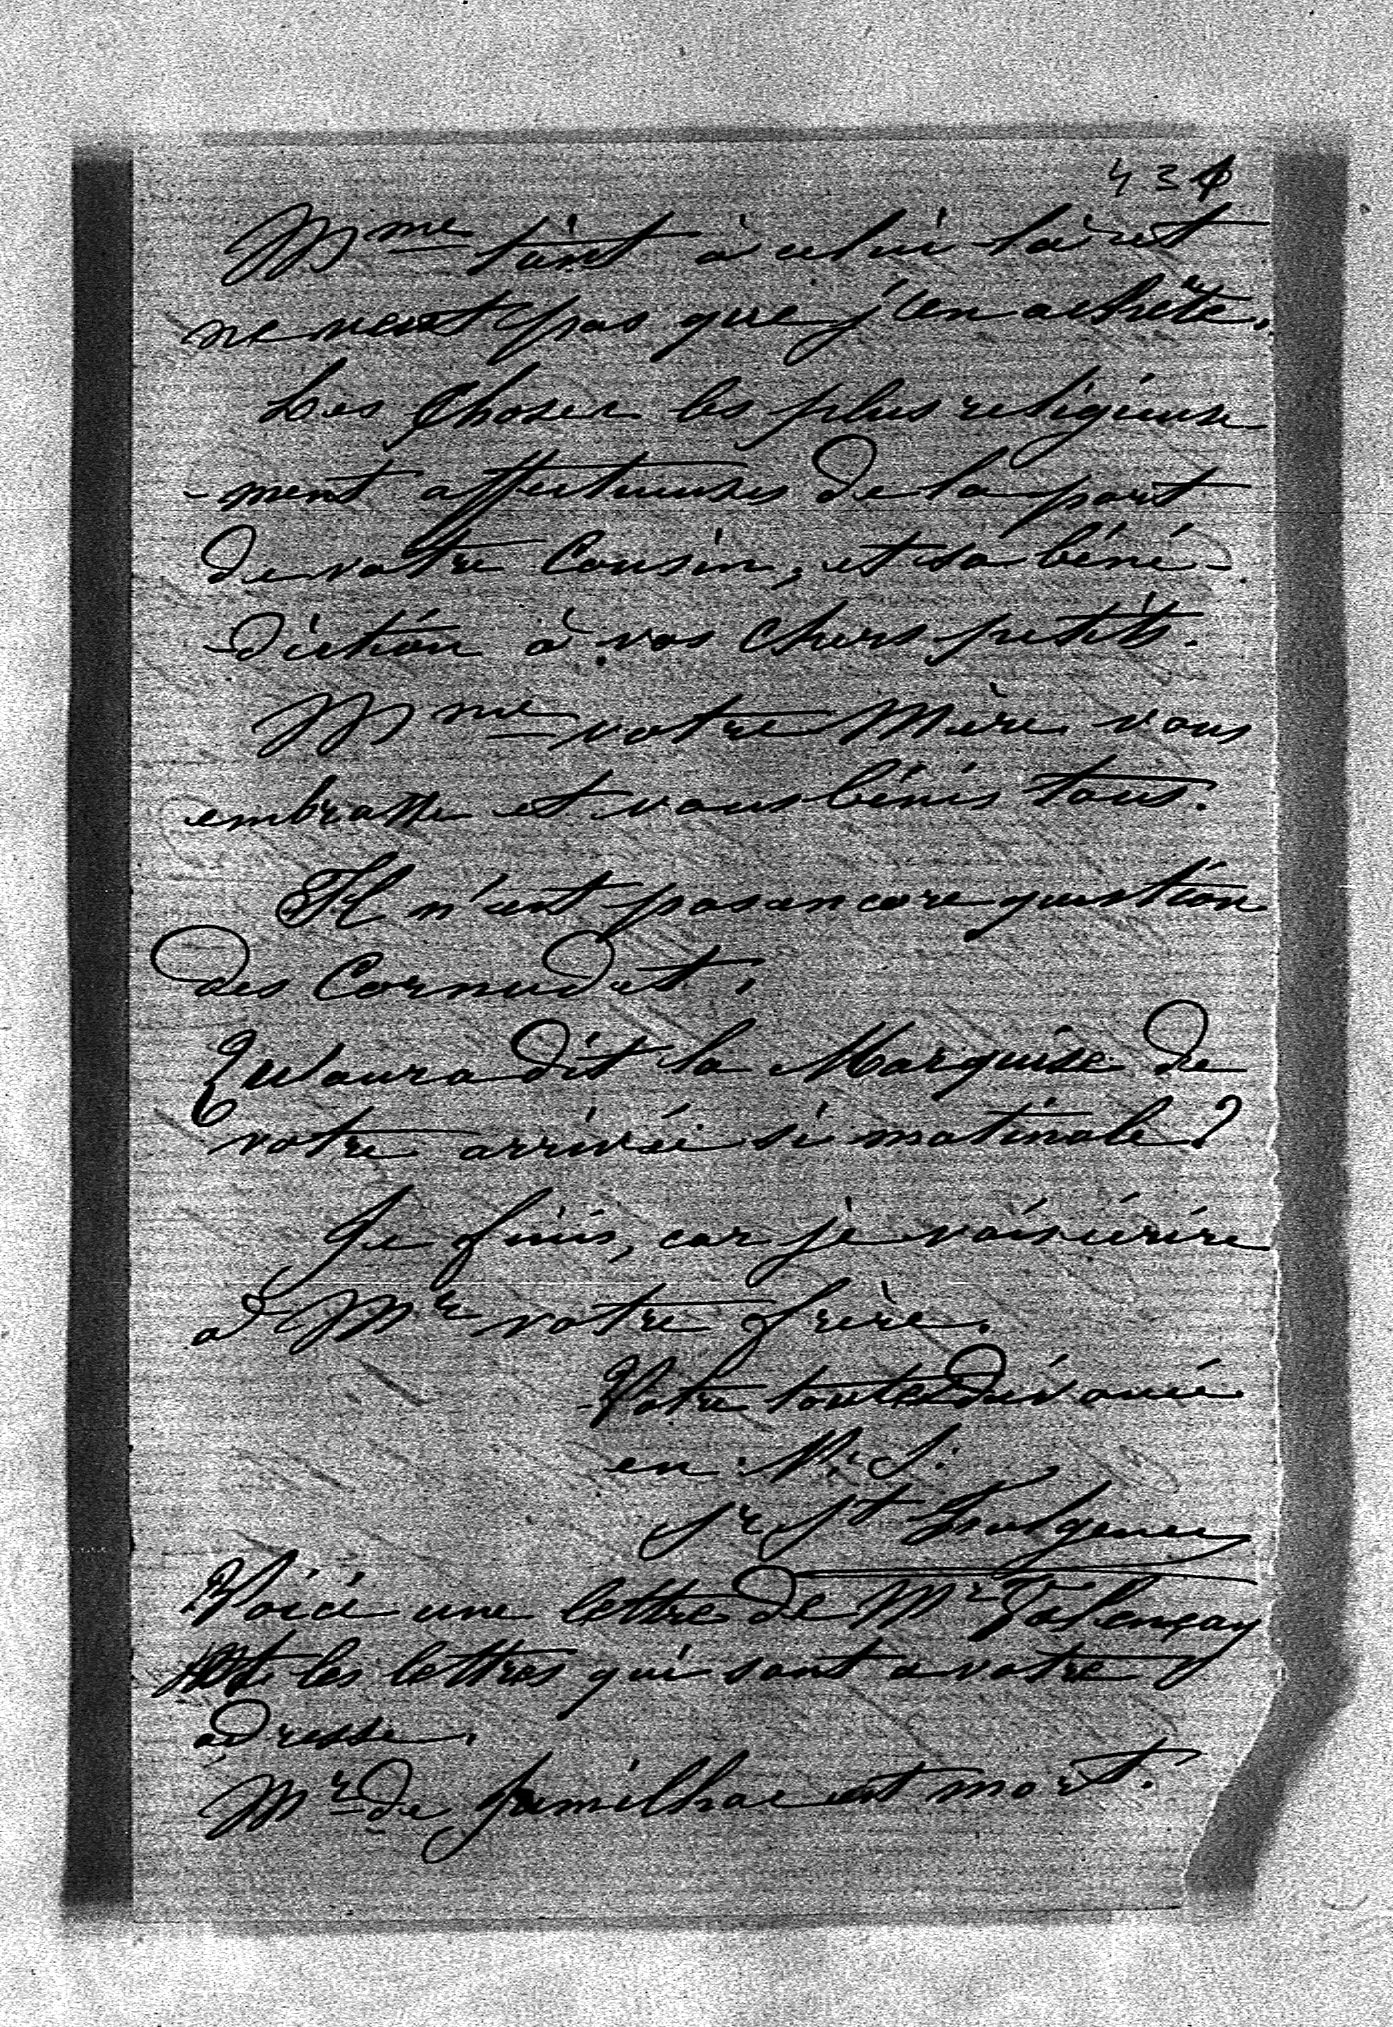 43
Mme tient à celui là et
ne veut pas que j'en achète.
Les choses les plus religieuse
-ment affectueuses de la part
de votre Cousin, et sa béné-
-diction à vos chers petits.
Mme votre Mère vous
embrasse et vous bénis tous.
Il n'est pas encore question
des Cornudet.
Qu'aura dit la Marquise de
votre arrivée si matinale?
Je finis, car je vais écrire
à Mr votre frère.
Votre toute dévouée
en N. S.
Sr St Fulgence
Voici une lettre de Mr Valençay
les lettres qui sont a votre
adresse.
Mr de Jumilhac est mort.